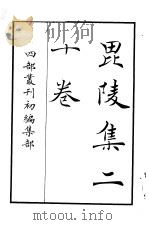 毘陵集二
十卷
四部叢刊初編集部
mtoou.info